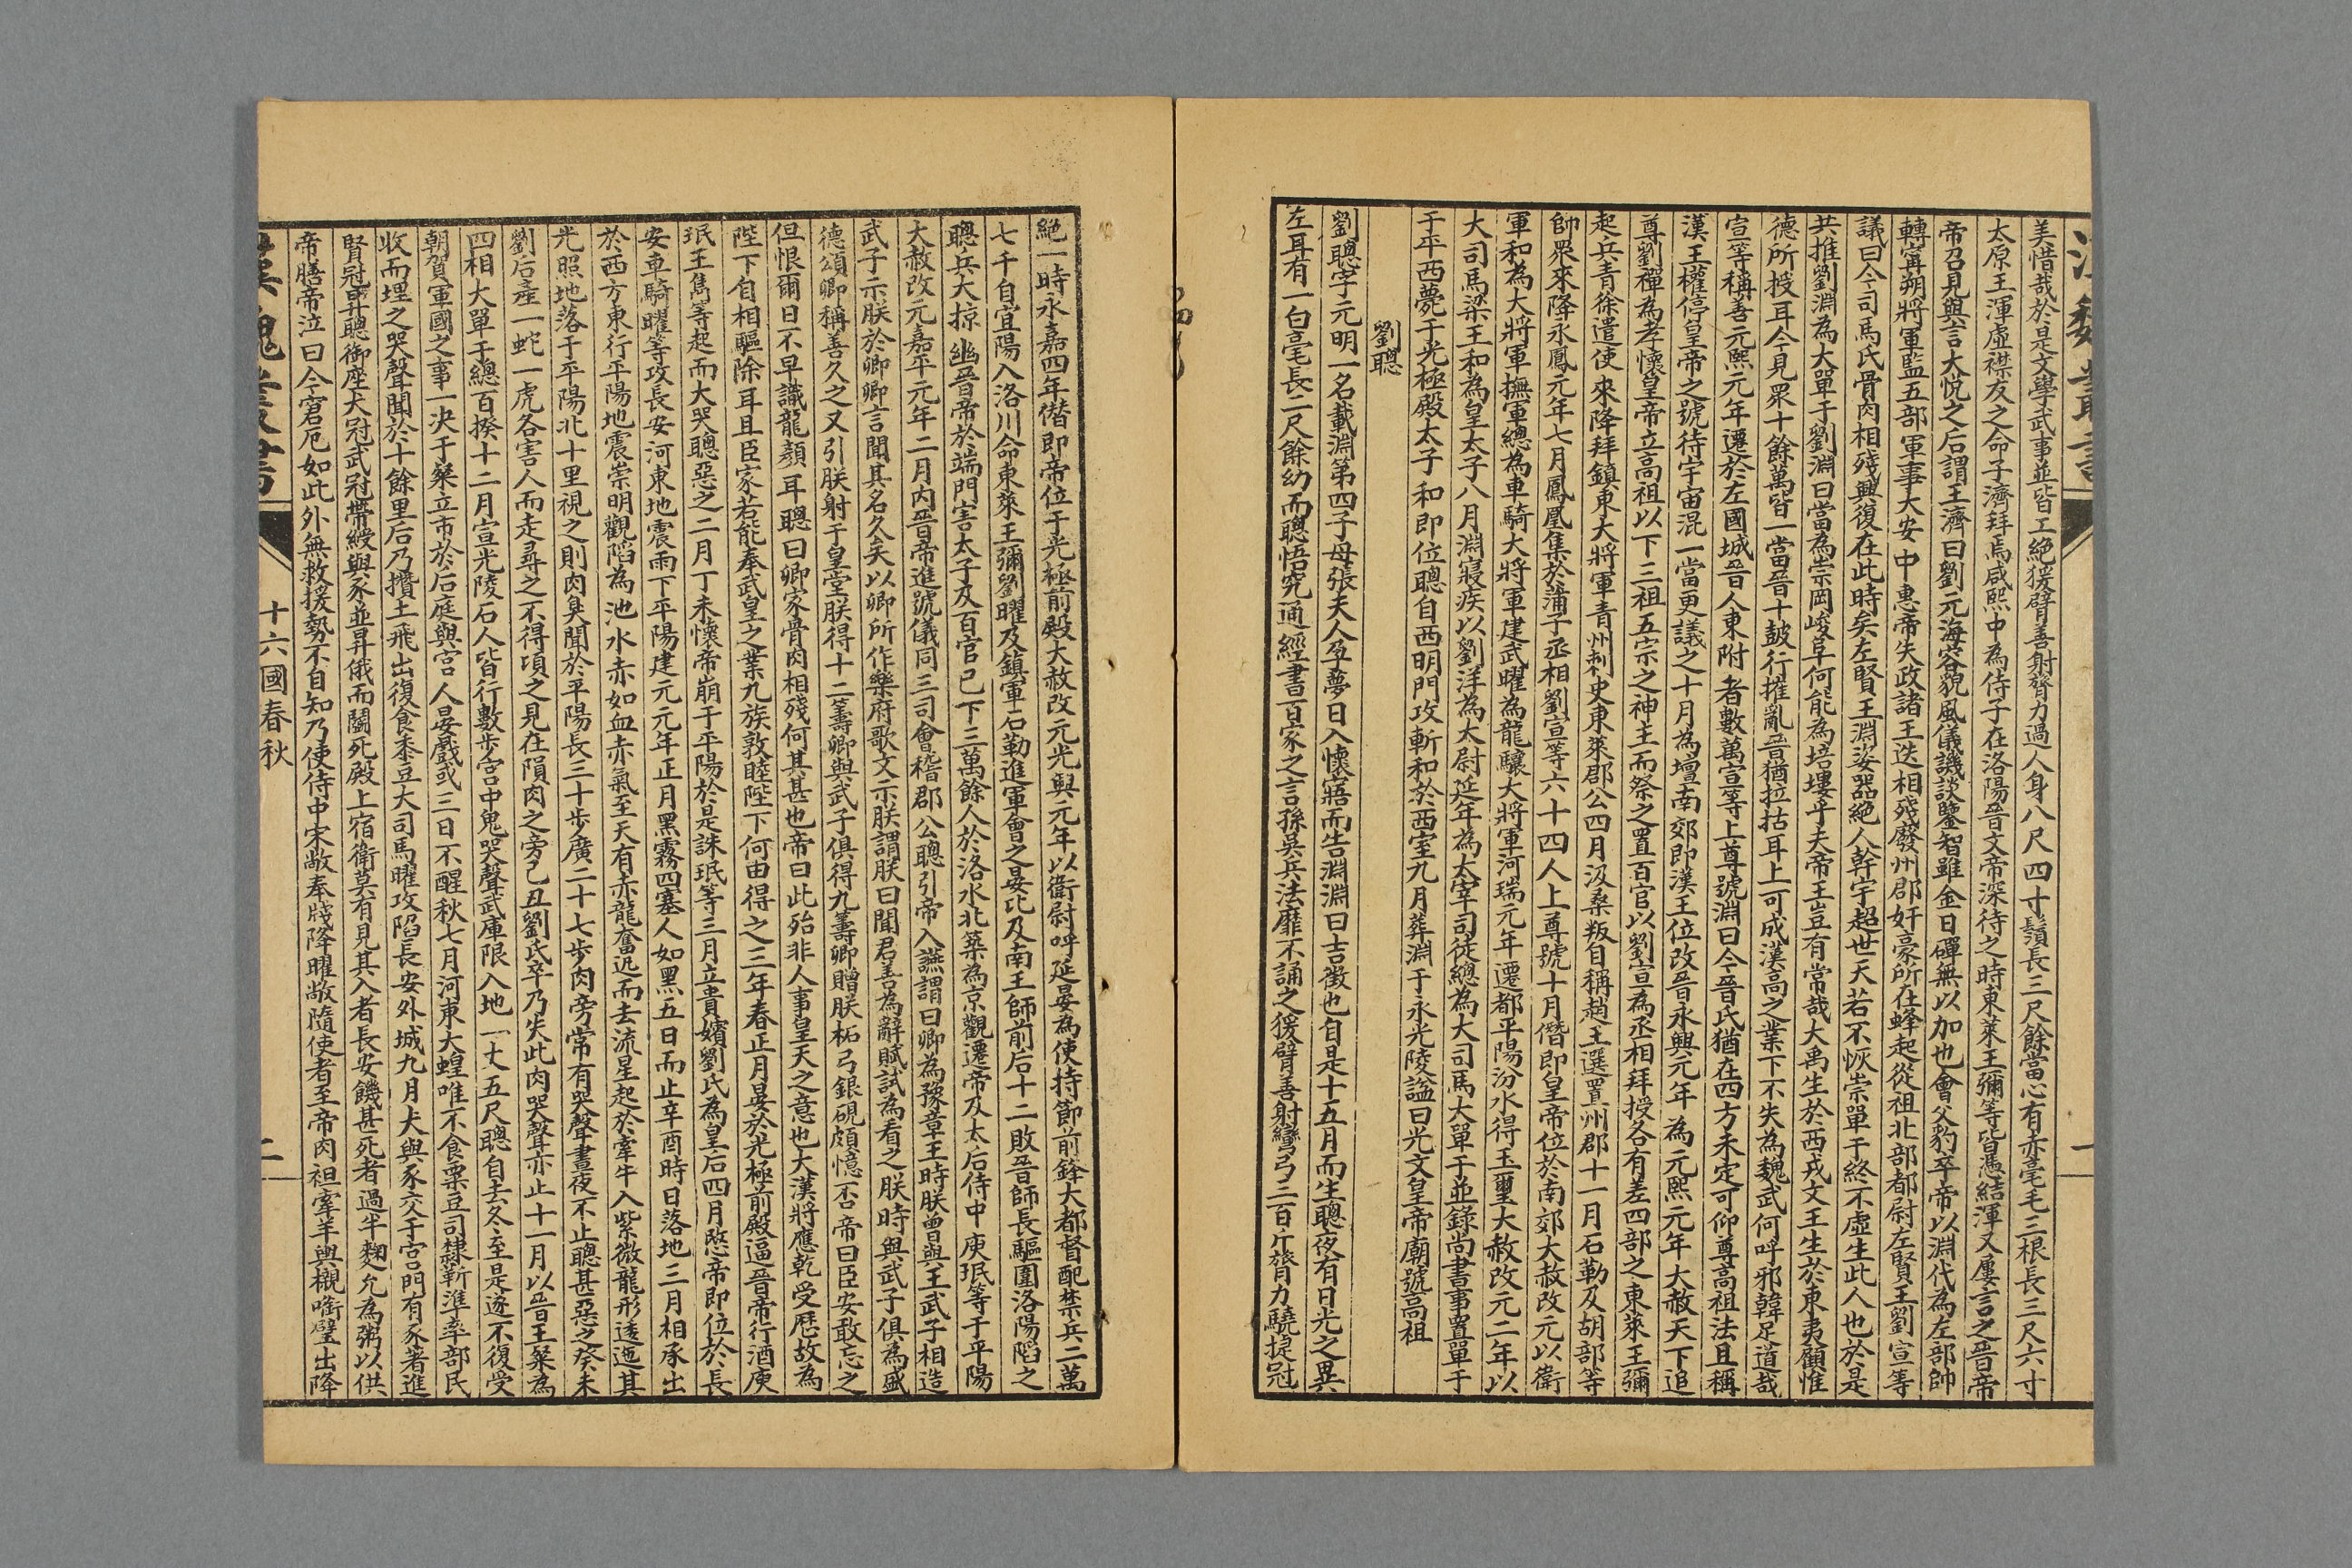 漢魏叢書
一
美惜哉於是文學武事並皆工絕猨臂善射膂力過人身八尺四寸鬚長三尺餘當心有赤毫毛三根長三尺六寸
太原王渾虛襟友之命子濟拜焉咸熙中為侍子在洛陽晉文帝深待之時東萊王彌等皆憑結渾又屢言之晉帝
帝召見與言大悅之后謂王濟曰劉元海容貌風儀譏談鑒智雖金日磾無以加也會父豹卒帝以淵代為左部帥
轉甯朔將軍監五部軍事大安中惠帝失政諸王迭相殘廢州郡奸豪所在蜂起從祖北部都尉左賢王劉宣等
議曰今司馬氏骨肉相殘興復在此時矣左賢王淵姿器絕人幹宇超世天若不恢崇單于終不虛生此人也於是
共推劉淵為大單于劉淵曰當為崇岡峻阜何能為培塿乎夫帝王豈有常哉大禹生於西戎文王生於東夷顧惟
德所授耳今見眾十餘萬皆一當晉十鼓行摧亂晉猶拉枯耳上可成漢高之業下不失為魏武何呼邪韓足道哉
宣等稱善元熙元年遷於左國城晉人東附者數萬宣等上尊號淵曰今晉氏猶在四方未定可仰尊高祖法且稱
漢王權停皇帝之號待宇宙混一當更議之十月為壇南郊即漢王位改晉永興元年為元熙元年大赦天下追
尊劉禪為孝懷皇帝立高祖以下三祖五宗之神主而祭之置百官以劉宣為丞相拜授各有差四部之東萊王彌
起兵青徐遣使來降拜鎮東大將軍青州刺史東萊郡公四月汲桑叛自稱趙王選置州郡十一月石勒及胡部等
帥眾來降永鳳元年七月鳳凰集於蒲子丞相劉宣等六十四人上尊號十月僭即皇帝位於南郊大赦改元以衛
軍和為大將軍撫軍總為車騎大將軍建武曜為龍驤大將軍河瑞元年遷都平陽汾水得玉璽大赦改元二年以
大司馬梁王和為皇太子八月淵寢疾以劉洋為太尉延年為太宰司徒總為大司馬大單于並錄尚書事置單于
于平西薨于光極殿太子和即位聰自西明門攻斬和於西室九月葬淵于永光陵諡曰光文皇帝廟號高祖
劉聰
劉聰字元明一名載淵第四子母張夫人孕夢日入懷寤而告淵淵曰吉徵也自是十五月而生聰夜有日光之異
左耳有一白毫長二尺餘幼而聰悟究通經書百家之言孫吳兵法靡不誦之猨臂善射彎弓三百斤膂力驍捷冠
絕一時永嘉四年僭即帝位于光極前殿大赦改元光興元年以衛尉呼延晏為使持節前鋒大都督配禁兵二萬
七千自宜陽入洛川命東萊王彌劉曜及鎮軍石勒進軍會之晏比及南王師前后十二敗晉師長驅圍洛陽陷之
聰兵大掠幽晉帝於端門害太子及百官已下三萬餘人於洛水北築為京觀遷帝及太后侍中庾珉等于平陽
大赦改元嘉平元年二月內晉帝進號儀同三司會稽郡公聰引帝入讌謂曰卿為豫章王時朕曾與王武子相造
武子示朕於卿卿言聞其名久矣以卿所作樂府歌文示朕謂朕曰聞君善為辭賦試為看之朕時與武子俱為盛
德頌卿稱善久之又引朕射于皇堂朕得十二籌卿與武子俱得九籌卿贈朕柘弓銀硯頗憶否帝曰臣安敢忘之
但恨爾日不早識龍顏耳聰曰卿家骨肉相殘何其甚也帝曰此殆非人事皇天之意也大漢將應乾受歷故為
陛下自相驅除耳且臣家若能奉武皇之業九族敦睦陛下何由得之三年春正月晏於光極前殿逼晉帝行酒庾
珉王雋等起而大哭聰惡之二月丁未懷帝崩于平陽於是誅珉等三月立貴嬪劉氏為皇后四月愍帝即位於長
安車騎曜等攻長安河東地震雨下平陽建元元年正月黑霧四塞人如黑五日而止辛酉時日落地三月相承出
於西方東行平陽地震崇明觀陷為池水赤如血赤氣至天有赤龍奮迅而去流星起於牽牛入紫微龍形逶迤其
光照地落于平陽北十里視之則肉臭聞於平陽長三十步廣二十七步肉旁常有哭聲晝夜不止聰甚惡之癸未
劉后產一蛇一虎各害人而走尋之不得頃之見在隕肉之旁己丑劉氏卒乃失此肉哭聲亦止十一月以晉王粲為
四相大單于總百揆十二月宣光陵石人皆行數步宮中鬼哭聲武庫限入地一丈五尺聰自去冬至是遂不復受
朝賀軍國之事一決于粲立市於后庭與宮人晏戲或三日不醒秋七月河東大蝗唯不食粟豆司隸靳準率部民
收而埋之哭聲聞於十餘里后乃攢土飛出復食黍豆大司馬曜攻陷長安外城九月犬與豕交于宮門有豕著進
賢冠昇聰御座犬冠武冠帶綬與豕並昇俄而鬬死殿上宿衛莫有見其入者長安饑甚死者過半麴允為粥以供
帝膳帝泣曰今窘厄如此外無救援勢不自知乃使侍中宋敞奉牋降曜敞隨使者至帝肉袒牽羊輿櫬銜璧出降
漢魏叢書
十六國春秋
二